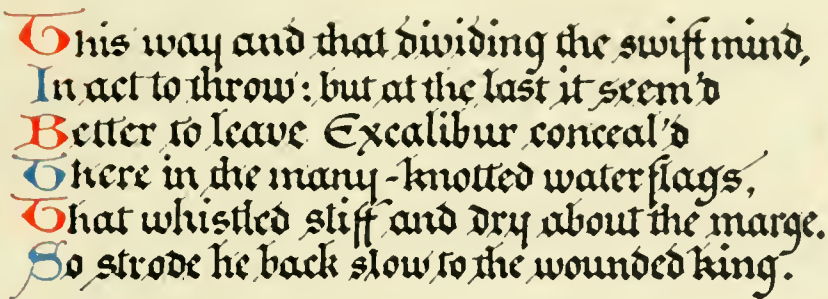 This way and that dividing the swift mind,
In act to throw: but at the last it seem'd
Better to leave Excalibur conceal'd
There in the many-knotted waterflags,
That whistled stiff and dry about the marge.
So strode he back slow to the wounded king.